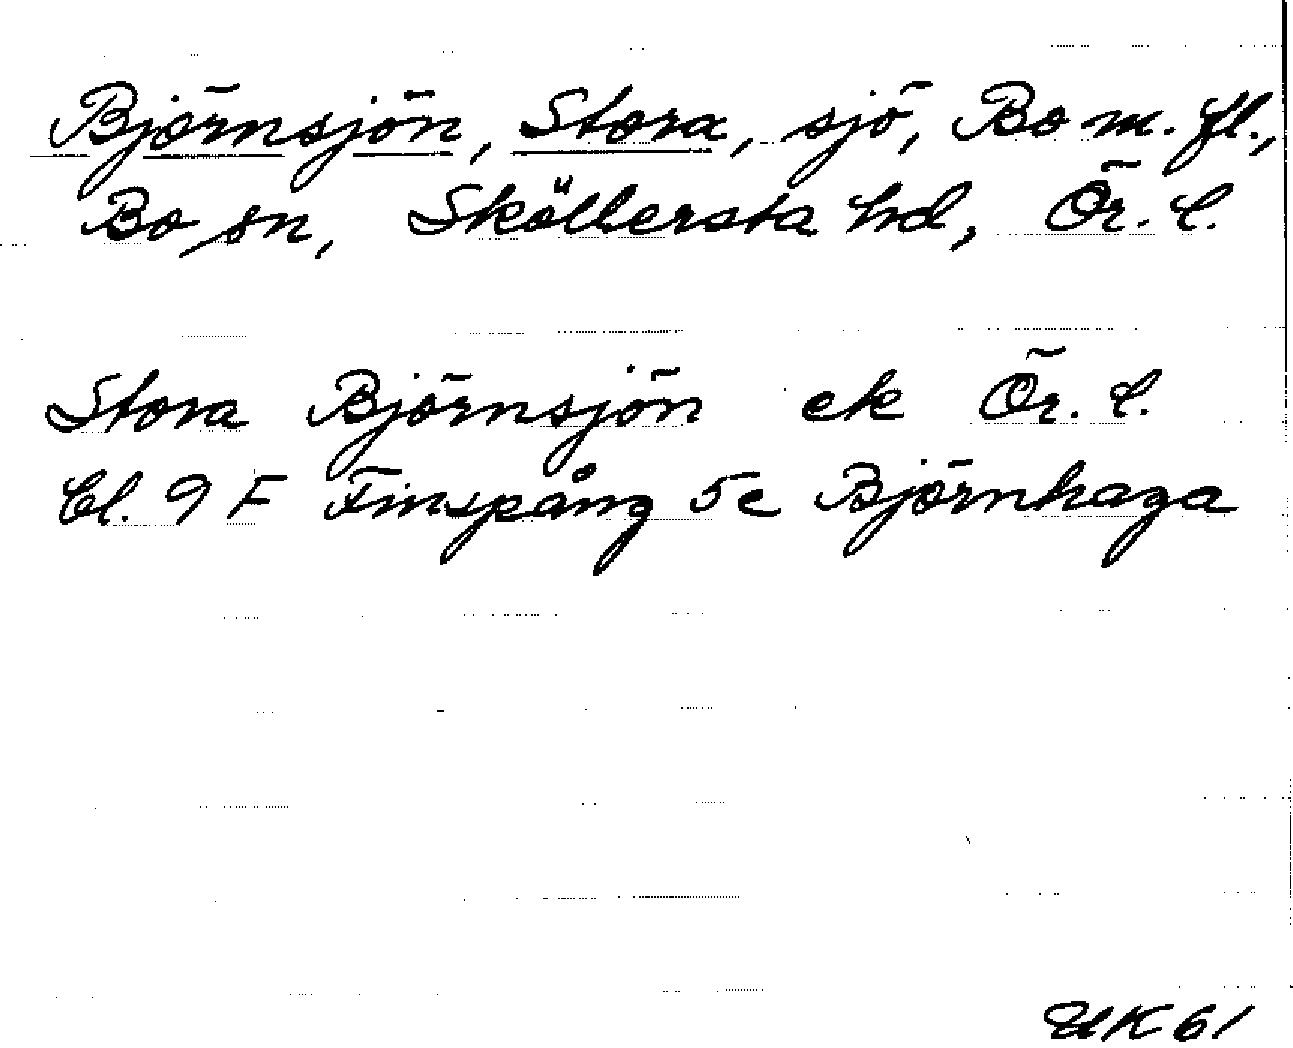 Björnsjön, Stora, sjö, Bo m. fl.,
Bo sn, Sköllersta hd, Ör. l.
Stora Björnsjön ek Ör. l.
Bl. 9 F Finspång 5c Björnhaga
UK 61